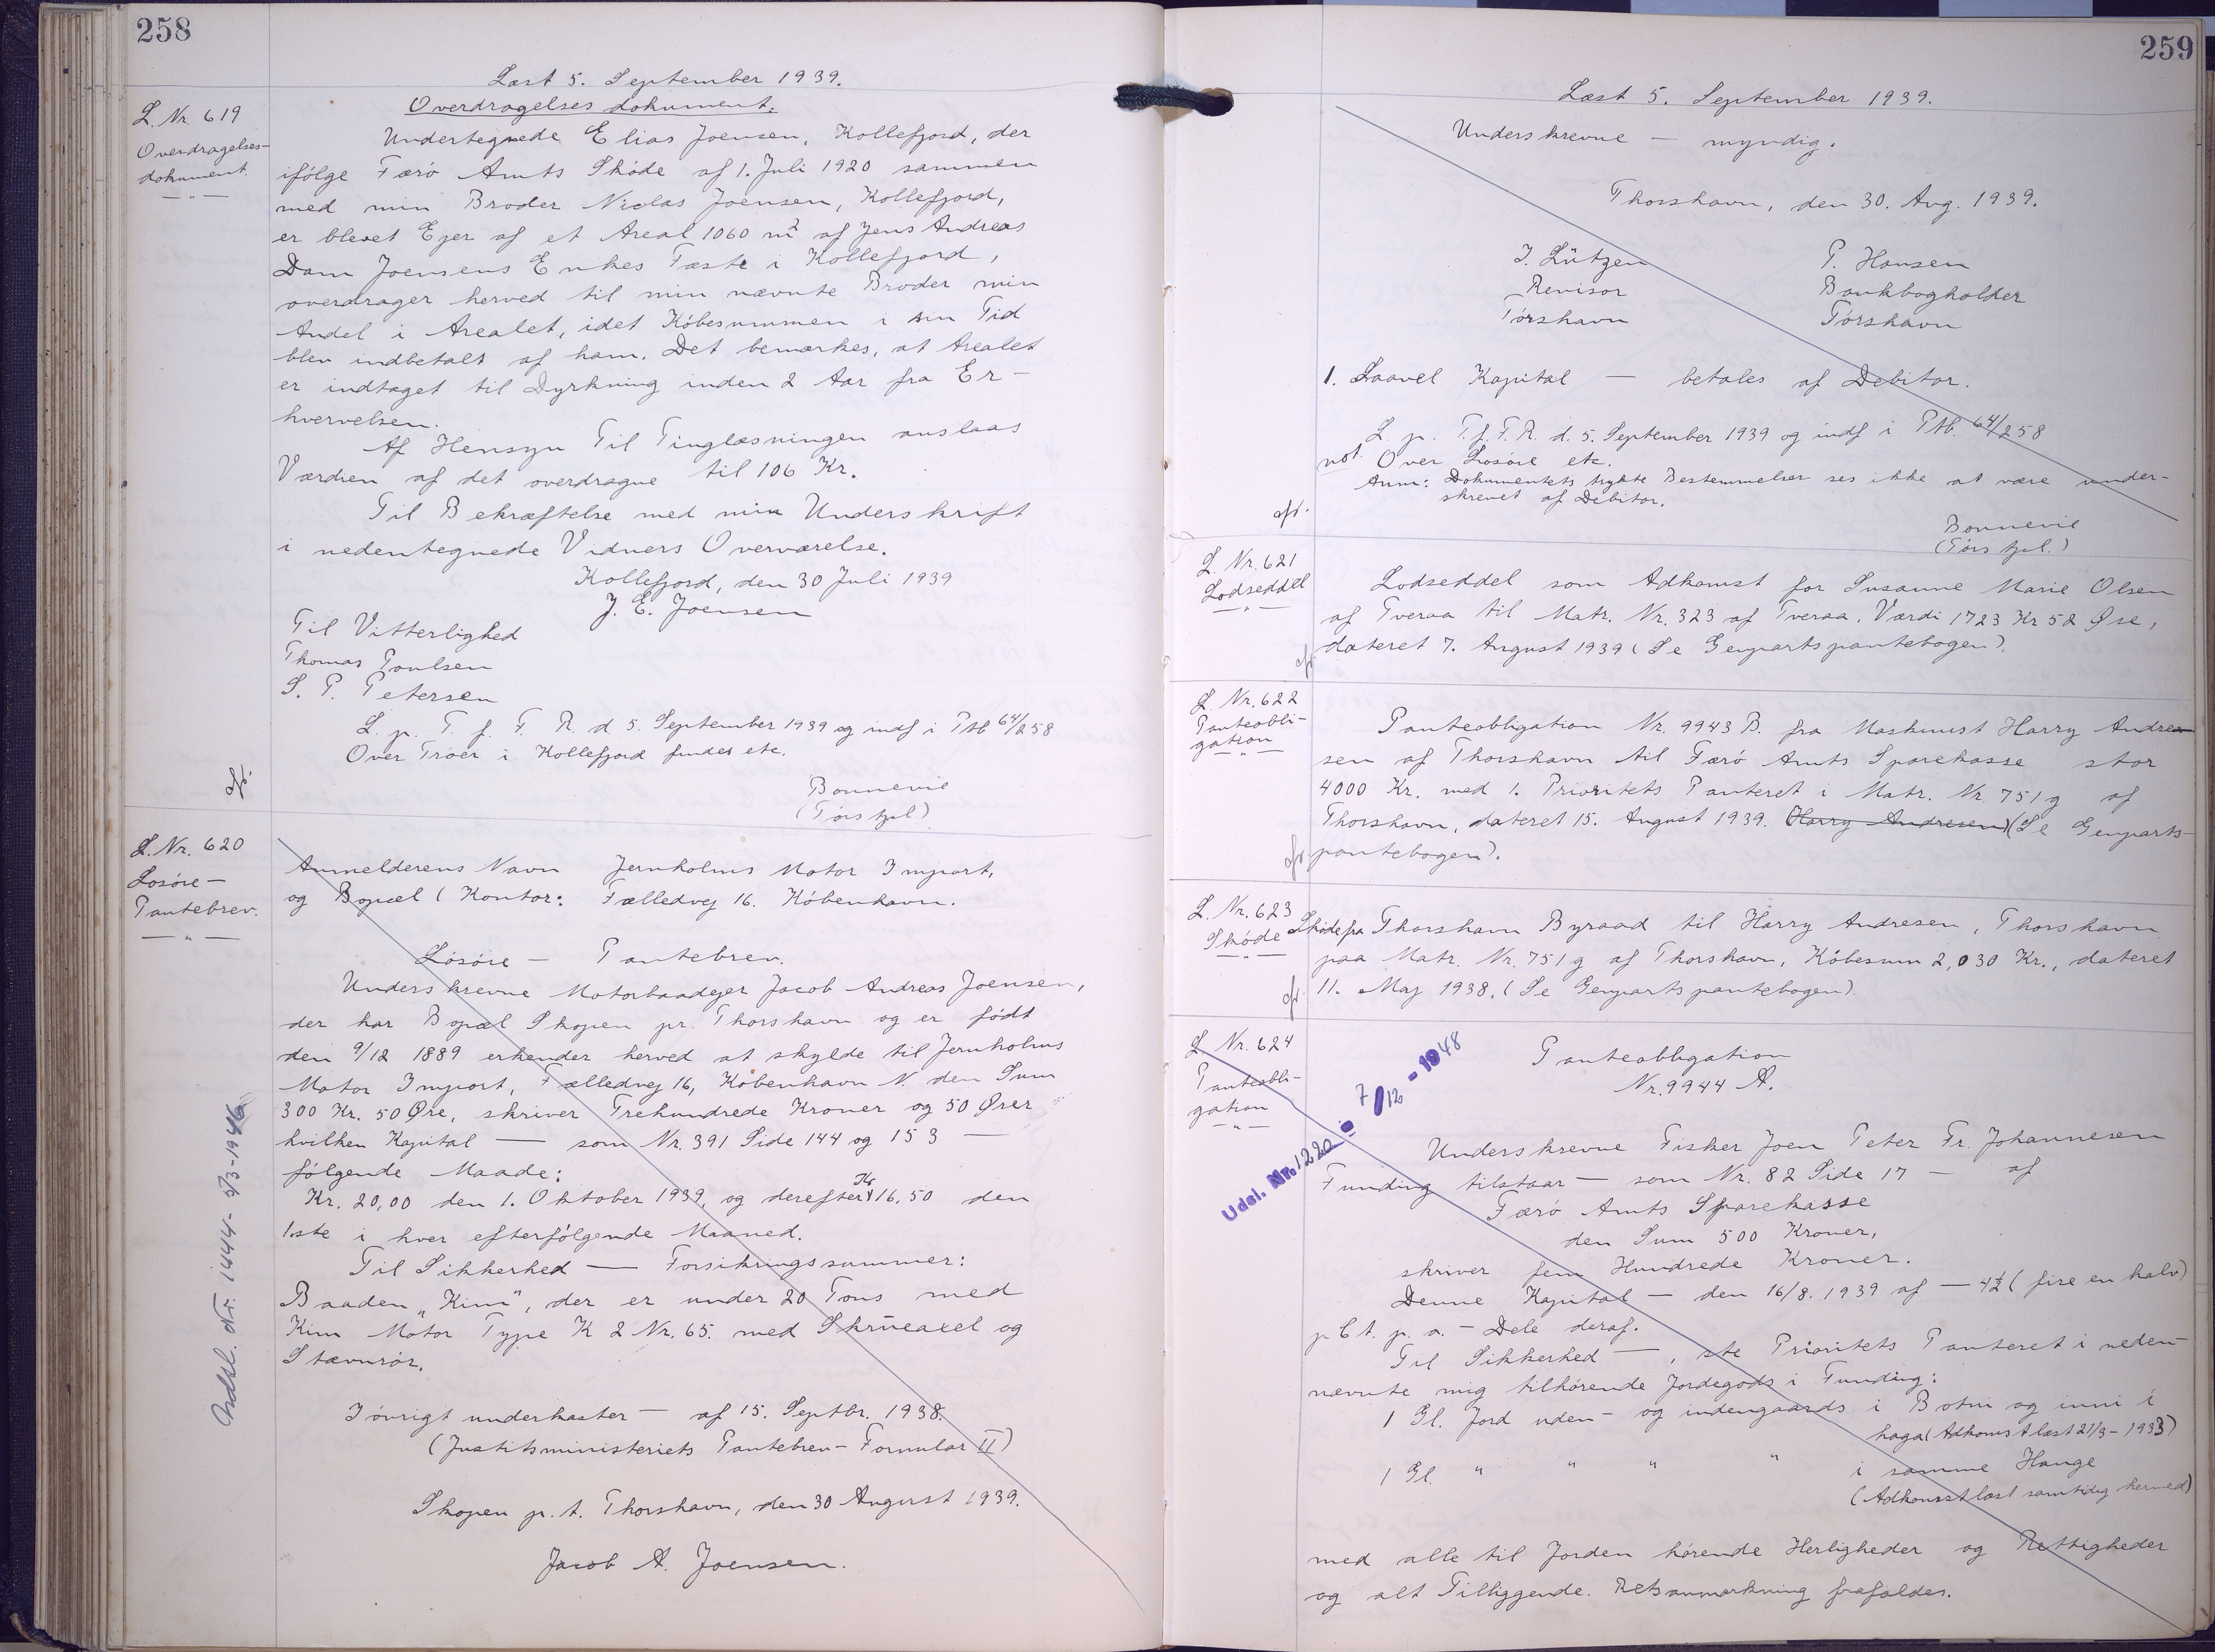 258
Læst 5. September 1939.
L. Nr. 619
Overdragelses-
dokument.
— " —
Overdragelsesdokument.
Undertegnede Elias Joensen, Kollefjord, der
ifölge Færö Amts Sköde af 1. Juli 1920 sammen
med min Broder Nicolas Joensen, Kollefjord,
er blevet Ejer af et Areal 1060 m² af Jens Andreas
Dam Joensens Enkes Fæste i Kollefjord,
overdrager herved til min nævnte Broder min
Andel i Arealet, idet Köbesummen i sin Tid
blev indbetalt af ham. Det bemærkes, at Arealet
er indtaget til Dyrkning inden 2 Aar fra Er-
hvervelsen.
Af Hensyn Til Tinglæsningen anslaas
Værdien af det overdragne til 106 Kr.
Til Bekræftelse med min Underskrift
i nedentegnede Vidners Overværelse.
Kollefjord, den 30 Juli 1939
J. E. Joensen
Til Vitterlighed
Thomas Poulsen
S. P. Petersen
L. p. T. f. F. R. d. 5. September 1939 og indf i Ptb 64/258
Over Træer i Kollefjord findes etc.
afr.
Bonnevie
(Tórs fpl.)
L. Nr. 620
Lösöre-
Pantebrev.
— " —
Anmelderens Navn Jernholms Motor Import,
og Bopæl (Kontor: Fælledvej 16. Köbenhavn.
Lösöre - Pantebrev.
Underskrevne Motorbaadejer Jacob Andreas Joensen,
der har Bopæl Skopen pr. Thorshavn og er födt
den 9/12 1889 erkender herved at skylde til Jernholms
Motor Import, Fælledvej 16, København N. den Sum
300 Kr. 50 Øre, skriver Trehundrede Kroner og 50 Ører
hvilken Kapital — som Nr. 391 Side 144 og 153 —
følgende Maade:
Kr. 20,00 den 1. Oktober 1939, og derefter Kr 16.50 den
1ste i hver efterfölgende Maaned.
Til Sikkerhed — Forsikringssummer:
Baaden „Kim", der er under 20 Tons med
Kim Motor Type K 2 Nr. 65. med Skrueaxel og
Stævnrör.
Iövrigt underkaster — af 15. Septbr. 1938.
(Justitsministeriets Pantebrev - Formular II)
Skopen p. t. Thorshavn, den 30 August 1939.
Jacob A. Joensen.
Udsl. Nr. 1444 - 5/3-1946
259
Læst 5. September 1939.
Underskrevne — myndig.
Thorshavn, den 30. Aug. 1939.
J. Lützen P. Hansen
Revisor Bankbogholder
Tórshavn Tórshavn
1. Saavel Kapital — betales af Debitor.
L. p. T. f. F. R. d. 5. September 1939 og indf i Ptb. 64/258
not. Over Lösöre etc.
Anm: Dokumentets trykte Bestemmelser ses ikke at være under-
skrevet af Debitor.
afr.
Bonnevie
(Tórs fpl.)
L. Nr. 621
Lodseddel
— " —
Lodseddel som Adkomst for Susanne Marie Olsen
af Tveraa til Matr. Nr. 323 af Tveraa. Værdi 1723 Kr 52 Øre,
dateret 7. August 1939 (Se Genpartspantebogen).
afr.
L. Nr. 622
Panteobli-
gation
— " —
Panteobligation Nr. 9943 B. fra Maskinist Harry Andre
sen af Thorshavn til Færö Amts Sparekasse stor
4000 Kr. med 1. Prioritets Panteret i Matr. Nr. 751g af
Thorshavn, dateret 15. August 1939. Harry Andresen) (Se Genparts-
afr. pantebogen).
L. Nr. 623
Sköde
— " —
Sköde fra Thorshavn Byraad til Harry Andresen, Thorshavn
paa Matr. Nr. 751g af Thorshavn, Köbesum 2,030 Kr., dateret
afr. 11. Maj 1938. (Se Genpartspantebogen).
L. Nr. 624
Panteobli-
gation
— " —
Udsl. Nr. 1220 7/12 - 1948
Panteobligation
Nr. 9944 A.
Underskrevne Fisker Joen Peter Fr. Johannesen
Funding tilstaar — som Nr. 82 Side 17 — af
Færö Amts Sparekasse
den Sum 500 Kroner,
skriver fem Hundrede Kroner.
Denne Kapital — den 16/8. 1939 af — 4½ (fire en halv)
pCt. p. a. - Dele deraf.
Til Sikkerhed —, ste Prioritets Panteret i neden-
nævnte mig tilhörende Jordegods i Funding:
1 Gl. Jord uden- og indengaards i Botni og inni í
haga (Adkomst læst 21/3 - 1933)
1 Gl. " " " " i samme Hauge
(Adkomst læst samtidig hermed)
med alle til Jorden hörende Herligheder og Rettigheder
og alt Tilliggende. Retsanmærkning frafaldes.